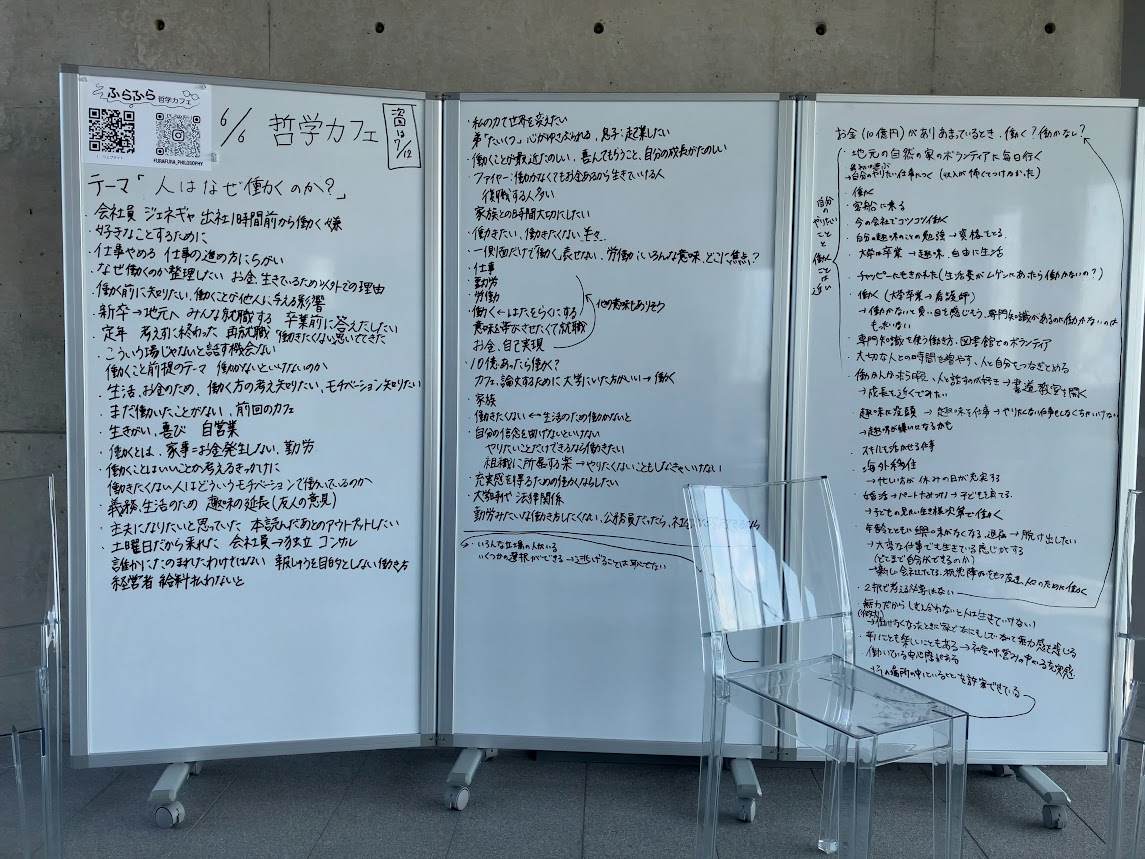 ふらふら
哲学カフェ
FURAFURA_PHILOSOPHY
6/6 哲学カフェ
次回は 7/12
テーマ「人はなぜ働くのか?」
・会社員 ジェネギャ 出社1時間前から働く嫌
・好きなことするために
・仕事やめる 仕事の進め方にちがい
・なぜ働くのか整理したい お金、生きているため以外での理由
・働く前に知りたい、働くことが他人に与える影響
・新卒→地元へ みんな就職する 卒業前に答えだしたい
・定年 考えずに終わった 再就職 働きたくない思いでてきた
・こういう場じゃないと話す機会ない
働くこと前提のテーマ 働かないといけないのか
・生活、お金のため、働く方の考え知りたい、モチベーション知りたい
・まだ働いたことがない、前回のカフェ
・生きがい、喜び 自営業
・働くとは、家事=お金発生しない、勤労
・働くことはいいことか考えるきっかけに
・働きたくない人はどういうモチベーションで働いているのか
・義務、生活のため 趣味の延長(友人の意見)
・主夫になりたいと思っていた 本読んだあとのアウトプットしたい
・土曜日だから来れた 会社員→独立 コンサル
・誰かにたのまれたわけではない 報しゅうを目的としない働き方
・経営者 給料払わないと
・私の力で世界を変えたい
・弟「たいくつ」心がゆさぶられる、息子:起業したい
・働くことが最近たのしい、喜んでもらうこと、自分の成長がたのしい
・ファイヤー:働かなくてもお金あるから生きていける人
復職する人多い
・家族との時間大切にしたい
・働きたい、働きたくない 半々
・一側面だけで「働く」表せない、労働にいろんな意味、どこに焦点?
・仕事
勤労
労働
働く←はたをらくにする
意味を帯びさせたくて就職
お金、自己実現
他の意味もありそう
・10億あったら働く?
カフェ、論文するために大学にいた方がいい→働く
・家族
・働きたくない ← 生活のため働かないと
・自分の信念を曲げないといけない
やりたいことだけできるなら働きたい
組織に所属する楽→やりたくないこともしなきゃいけない
・充実感を得るための働くならしたい
・大学時代 法律関係
・勤労みたいな働き方したくない、公務員だったら、
・いろんな立場の人がいる
いくつかの選択ができる→逃げることは恥でない
お金(10億円)がありあまっているとき、働く?働かない?
自分のやりたいことと働くことが近い
・地元の自然の家のボランティアに毎日行く
・自分のやりたい仕事につく(収入が怖くてつけなかった)
・働く
・客船に乗る
・今の会社でコツコツ働く
・自分の趣味のことの勉強→資格をとる
・大学は卒業→趣味、自由に生活
・チャッピーにもきかれた(生活費がムゲンにあったら働かないの?)
・働く(大学卒業→看護師)
→働かないと負い目を感じそう、専門知識があるのに働かないのは
もったいない
・専門知識を使う働き方、図書館でのボランティア
・大切な人との時間を増やす、人と自分をつなぎとめる
→成長を近くでみたい
・趣味に没頭 → 趣味を仕事→やりたくない仕事もしなくちゃいけない
→趣味が嫌いになるかも
・スキルを活かせる仕事
・海外移住
→忙しい方が休みの日が充実する
→子どもの見たい生き様次第で働く
→大変な仕事でも生きている感じがする
(どこまで自分ができるのか)
・2択で考える必要はない
・辛いことも楽しいこともある→社会の中の営みの中にいる充実感
・働いている安心感がある